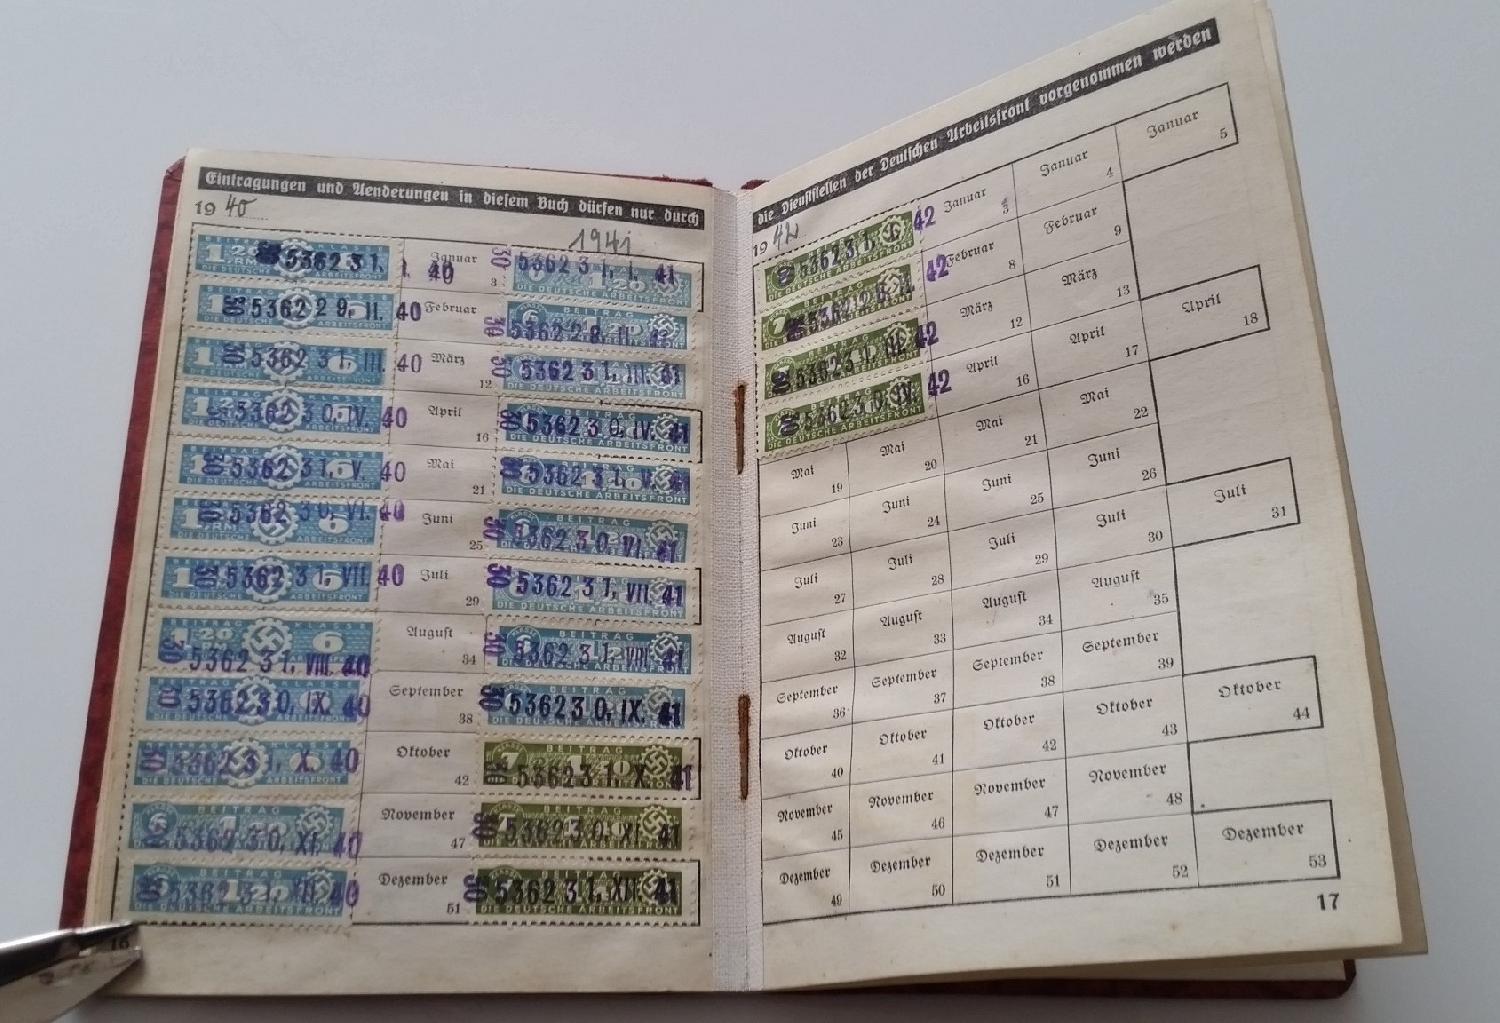 Eintragungen und Aenderungen in diesem Buch dürfen nur durch
1940
1941
5362 31. I. 40 Januar 3 30 5362 31. I. 41
30 5362 29. II. 40 Februar 30 5362 28. II. 41
30 5362 31. III. 40 März 12 30 5362 31. III. 41
30 5362 30. IV. 40 April 16 30 5362 30. IV. 41
30 5362 31. V. 40 Mai 21 30 5362 31. V. 41
30 5362 30. VI. 40 Juni 25 30 5362 30. VI. 41
30 5362 31. VII. 40 Juli 29 30 5362 31. VII. 41
30 5362 31. VIII. 40 August 34 30 5362 31. VIII. 41
30 5362 30. IX. 40 September 38 30 5362 30. IX. 41
30 5362 31. X. 40 Oktober 42 30 5362 31. X. 41
30 5362 30. XI. 40 November 47 30 5362 30. XI. 41
30 5362 31. XII. 40 Dezember 51 30 5362 31. XII. 41
BEITRAG KLASSE
DIE DEUTSCHE ARBEITSFRONT
16
die Dienststellen der Deutschen Arbeitsfront vorgenommen werden
1942
30 5362 31. I. 42 Januar 3 Januar 4 Januar 5
30 5362 28. II. 42 Februar 8 Februar 9
30 5362 31. III. 42 März 12 März 13
30 5362 30. IV. 42 April 16 April 17 April 18
Mai 19 Mai 20 Mai 21 Mai 22
Juni 23 Juni 24 Juni 25 Juni 26
Juli 27 Juli 28 Juli 29 Juli 30 Juli 31
August 32 August 33 August 34 August 35
September 36 September 37 September 38 September 39
Oktober 40 Oktober 41 Oktober 42 Oktober 43 Oktober 44
November 45 November 46 November 47 November 48
Dezember 49 Dezember 50 Dezember 51 Dezember 52 Dezember 53
17